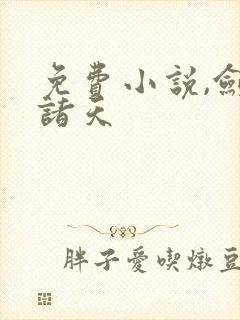 免費小説,
諸天
胖子愛喫燉豆